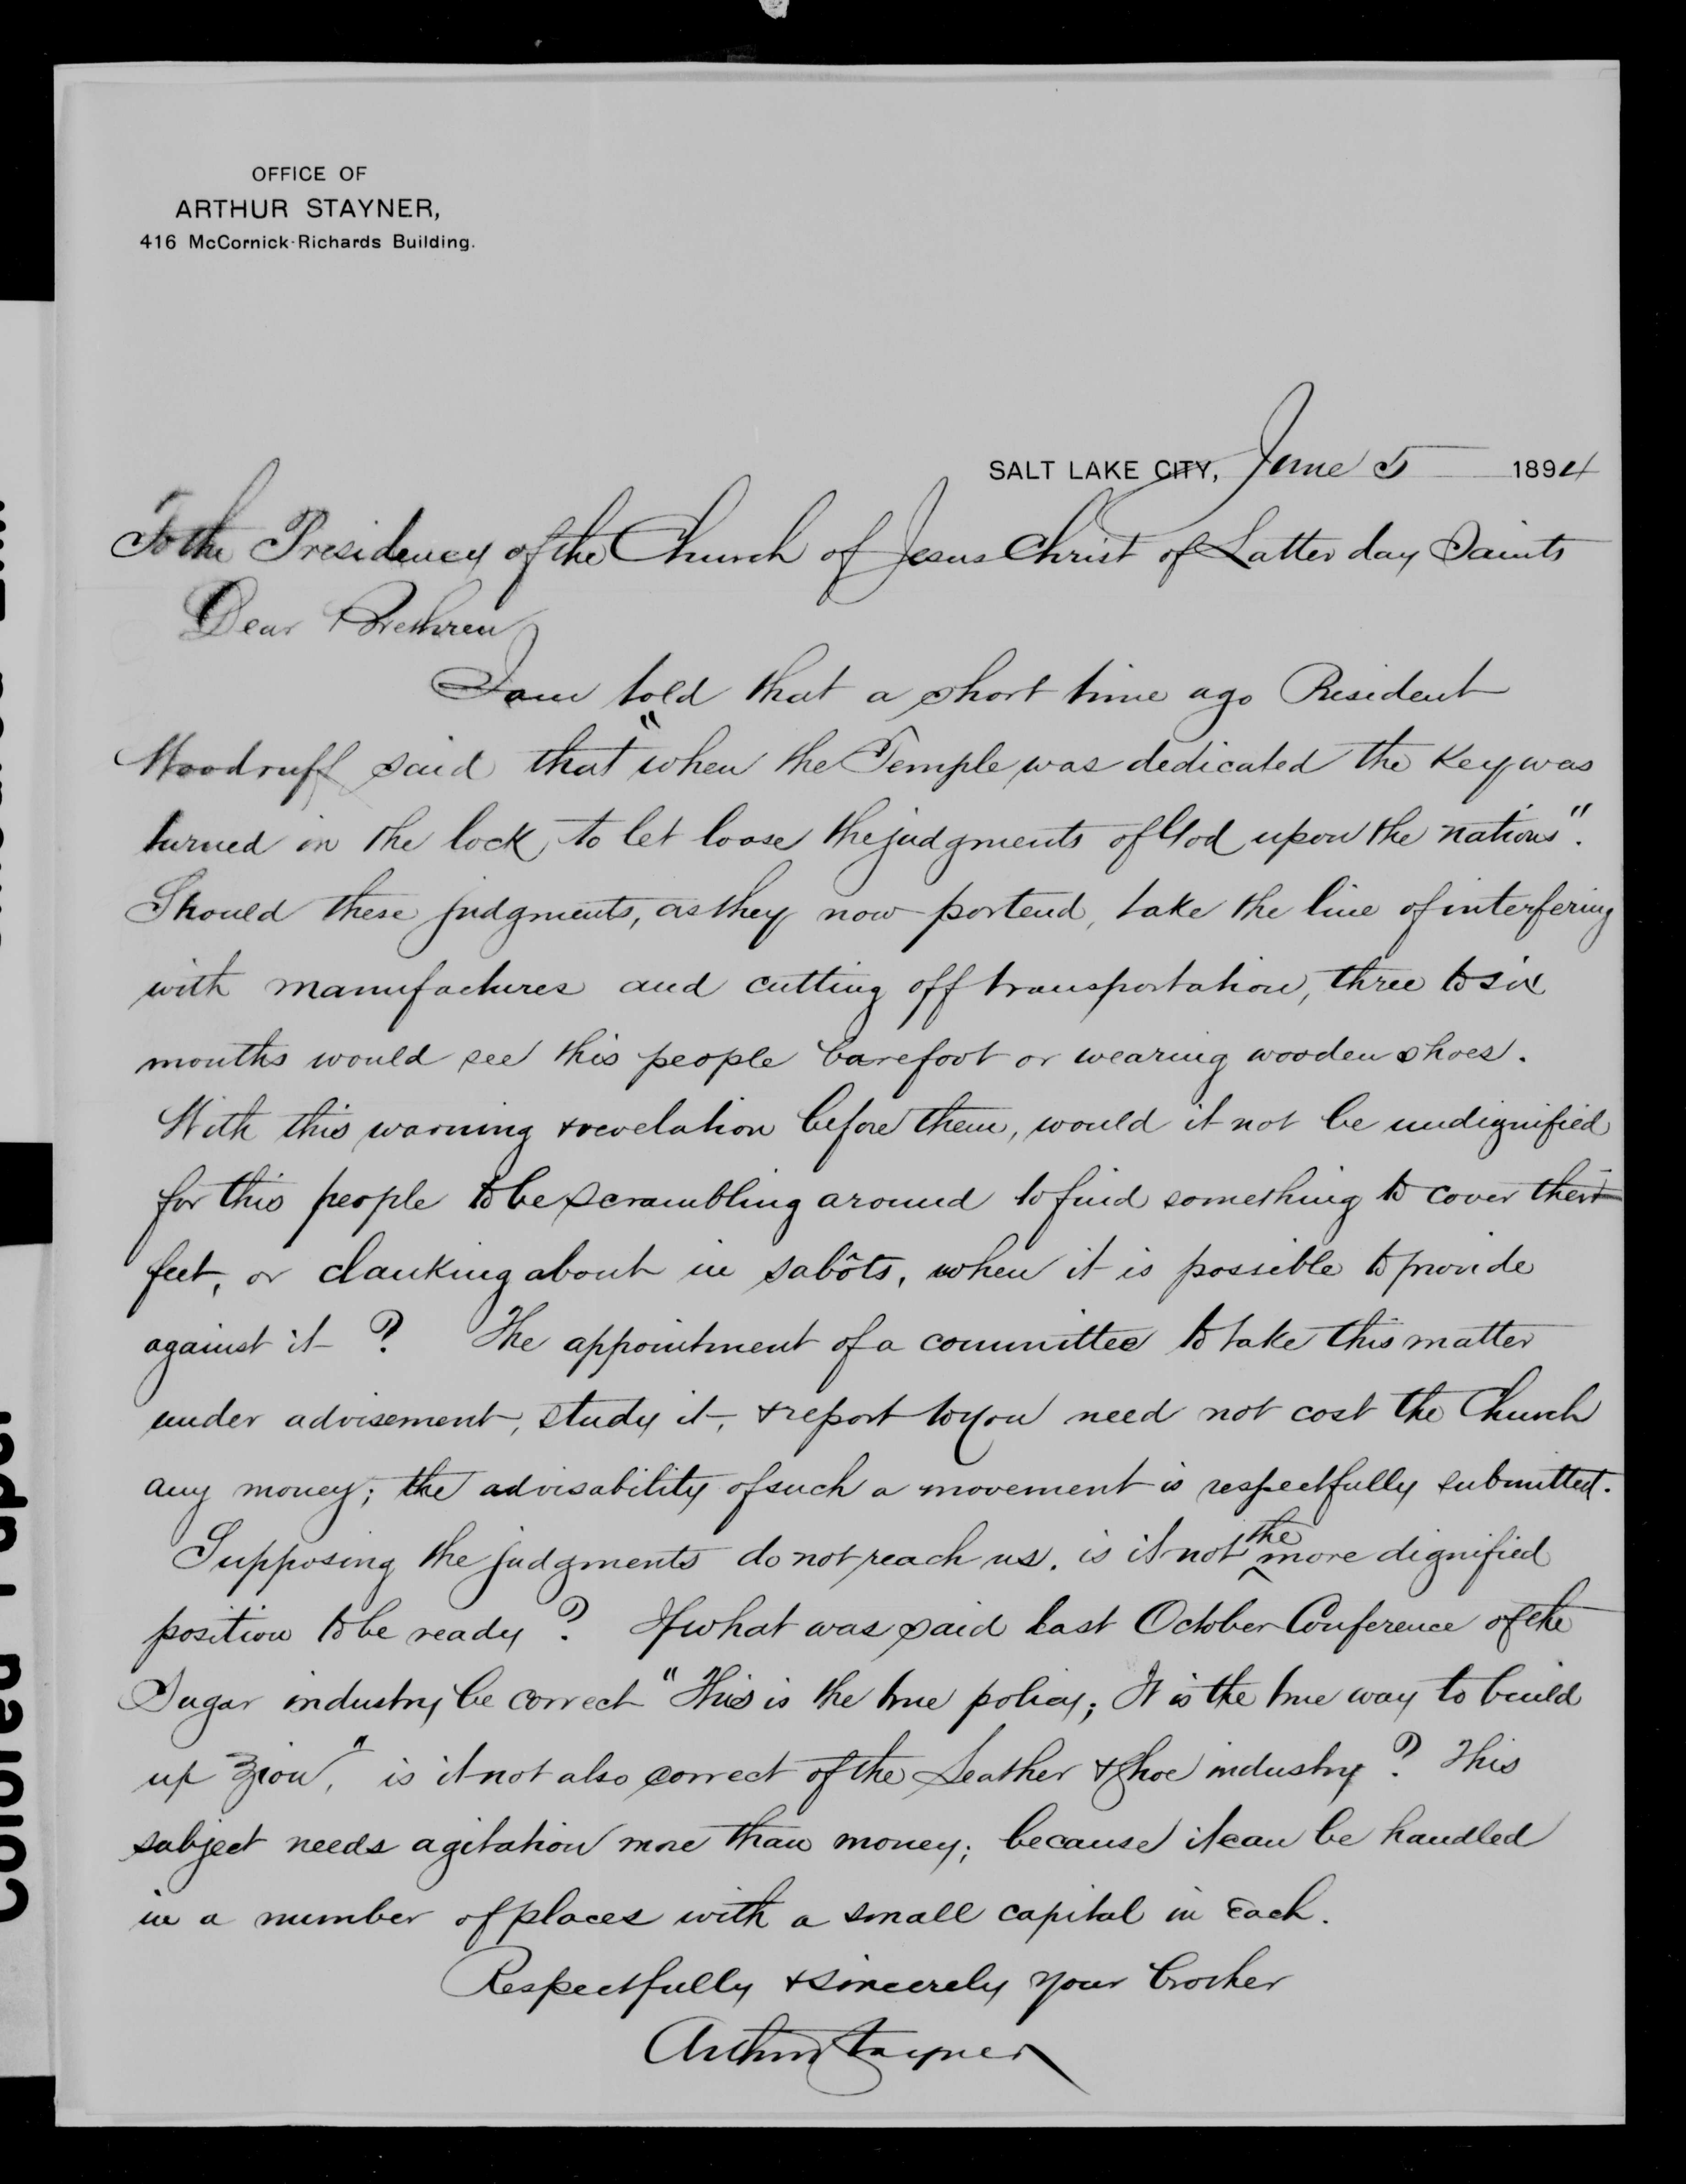 OFFICE OF
ARTHUR STAYNER,
416 McCornick-Richards Building.
SALT LAKE CITY, June 5 1894
To the Presidency of the Church of Jesus Christ of Latter day Saints
Dear Brethren
I am told that a short time ago President
Woodruff said that "when the Temple was dedicated the key was
turned in the lock, to let loose the judgments of God upon the nations".
Should these judgments, as they now portend, take the line of interfering
with manufactures and cutting off transportation, three to six
months would see this people barefoot or wearing wooden shoes.
With this warning & revelation before them, would it not be undignified
for this people to be scrambling around to find something to cover their
feet, or clanking about in sabôts, when it is possible to provide
against it ? The appointment of a committee to take this matter
under advisement, study it, & report to you need not cost the Church
any money; the advisability of such a movement is respectfully submitted.
Supposing the judgments do not reach us, is it not ^the more dignified
position to be ready ? If what was said last October Conference of the
Sugar industry be correct "This is the true policy; It is the true way to build
up Zion," is it not also correct of the Leather & Shoe industry ? This
subject needs agitation more than money; because it can be handled
in a number of places with a small capital in each.
Respectfully & sincerely your brother
Arthur Stayner